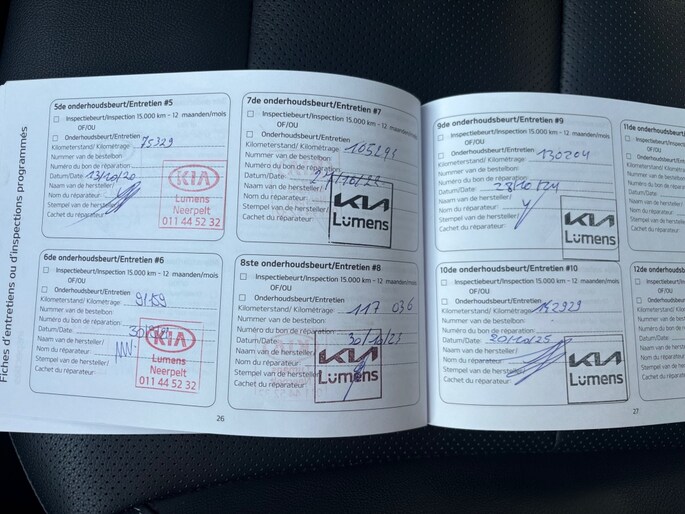 Fiches d'entretiens ou d'inspections programmés
5de onderhoudsbeurt/Entretien #5
Inspectiebeurt/Inspection 15.000 km - 12 maanden/mois
OF/OU
Onderhoudsbeurt/Entretien
Kilometerstand/ Kilométrage 75329
Nummer van de bestelbon
Numéro du bon de réparation
Datum/Date 13/10/20
Naam van de hersteller/
Nom du réparateur:
Stempel van de hersteller/
Cachet du réparateur:
KIA
Lumens
Neerpelt
011 44 52 32
6de onderhoudsbeurt/Entretien #6
Inspectiebeurt/Inspection 15.000 km - 12 maanden/mois
OF/OU
Onderhoudsbeurt/Entretien
Kilometerstand/ Kilométrage
Nummer van de bestelbon
Numéro du bon de réparation
Datum/Date
Naam van de hersteller/
Nom du réparateur:
Stempel van de hersteller/
Cachet du réparateur:
KIA
Lumens
Neerpelt
011 44 52 32
26
7de onderhoudsbeurt/Entretien #7
Inspectiebeurt/Inspection 15.000 km - 12 maanden/mois
OF/OU
Onderhoudsbeurt/Entretien
Kilometerstand/ Kilométrage
Nummer van de bestelbon
Numéro du bon de réparation
Datum/Date:
Naam van de hersteller/
Nom du réparateur:
Stempel van de hersteller/
Cachet du réparateur:
KIA
Lumens
8ste onderhoudsbeurt/Entretien #8
Inspectiebeurt/Inspection 15.000 km - 12 maanden/mois
OF/OU
Onderhoudsbeurt/Entretien
Kilometerstand/ Kilométrage 117 036
Nummer van de bestelbon
Numéro du bon de réparation
Datum/Date: 30/10/23
Naam van de hersteller/
Nom du réparateur:
Stempel van de hersteller/
Cachet du réparateur:
KIA
Lumens
9de onderhoudsbeurt/Entretien #9
Inspectiebeurt/Inspection 15.000 km - 12 maanden/mois
OF/OU
Onderhoudsbeurt/Entretien
Kilometerstand/ Kilométrage 130204
Nummer van de bestelbon
Numéro du bon de réparation
Datum/Date: 28/10/24
Naam van de hersteller/
Nom du réparateur:
Stempel van de hersteller/
Cachet du réparateur:
KIA
Lumens
10de onderhoudsbeurt/Entretien #10
Inspectiebeurt/Inspection 15.000 km - 12 maanden/mois
OF/OU
Onderhoudsbeurt/Entretien
Kilometerstand/ Kilométrage
Nummer van de bestelbon
Numéro du bon de réparation
Datum/Date:
Naam van de hersteller/
Nom du réparateur:
Stempel van de hersteller/
Cachet du réparateur:
KIA
Lumens
27